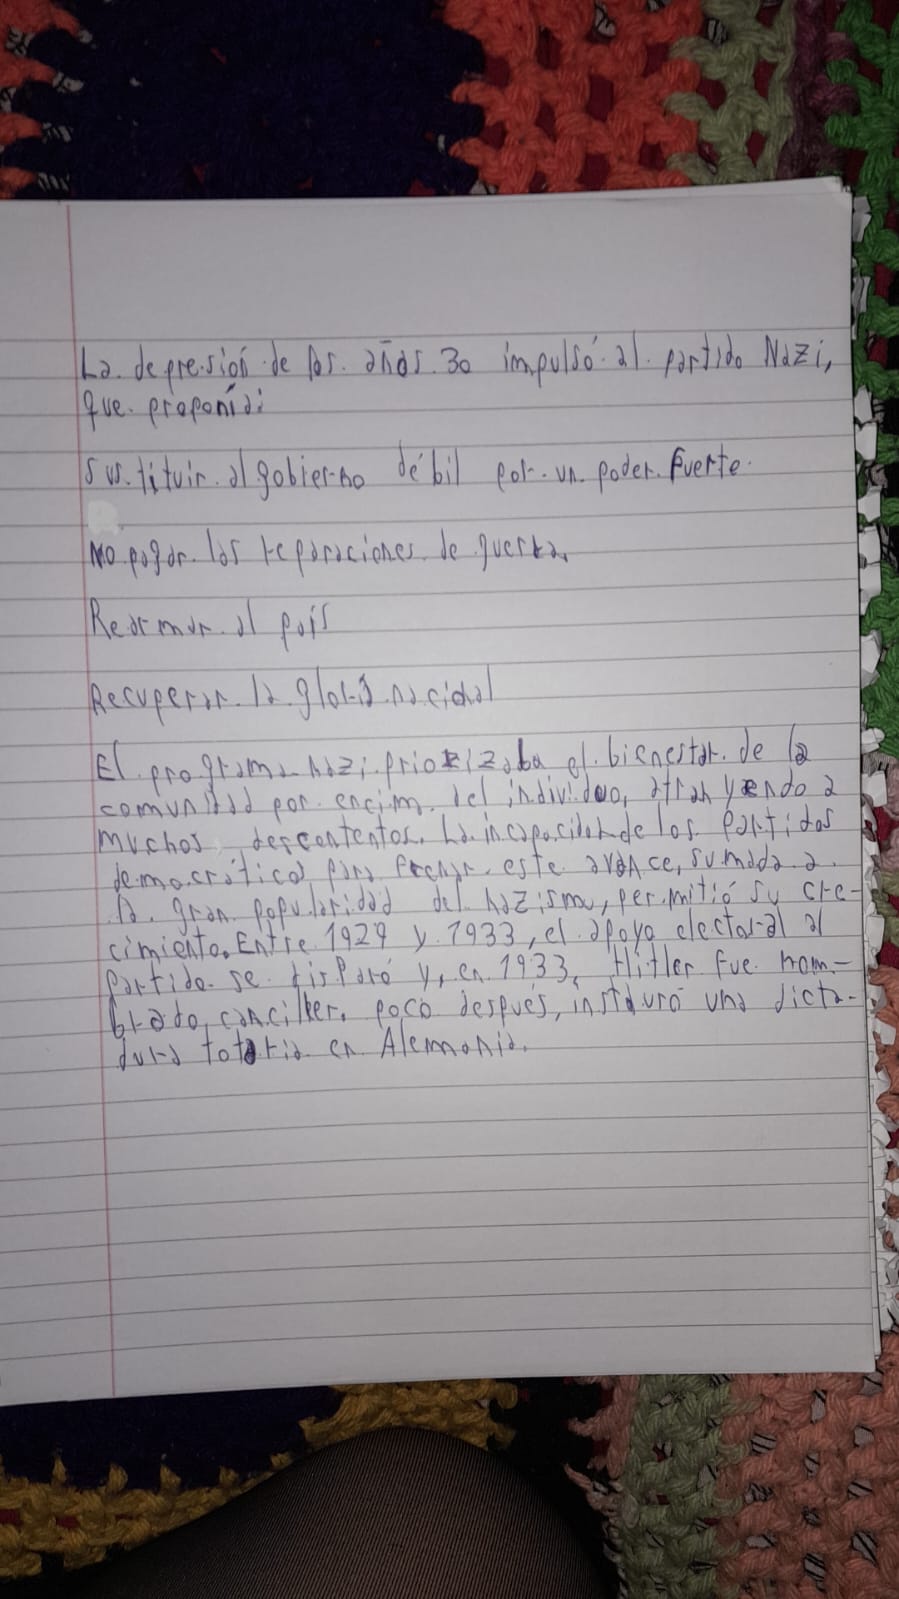 La depresión de los años 30 impulsó al partido Nazi,
que proponía:
Sustituir al gobierno débil por un poder fuerte.
No pagar las reparaciones de guerra.
Rearmar al país
Recuperar la gloria nacional
El programa nazi priorizaba el bienestar de la
comunidad por encima del individuo, atrayendo a
muchos descontentos. La incapacidad de los partidos
democráticos para frenar este avance, sumada a
la gran popularidad del nazismo, permitió su cre-
cimiento. Entre 1929 y 1933, el apoyo electoral al
partido se disparó y, en 1933, Hitler fue nom-
brado canciller. poco después, instauró una dicta-
dura en Alemania.